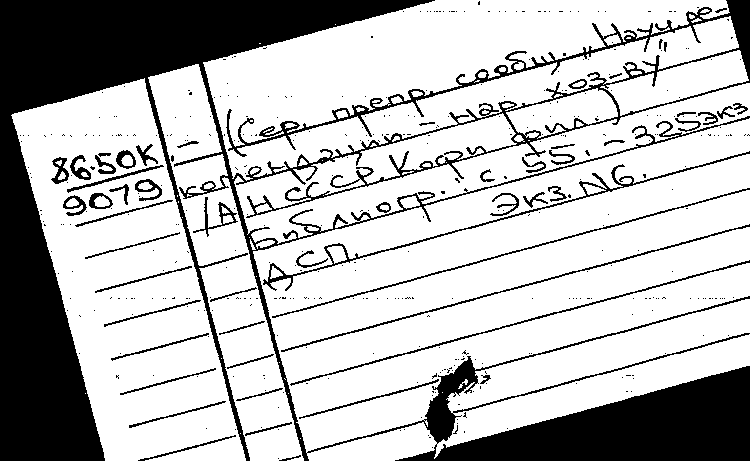 . – (Сер. препр. сообщ. „Науч. ре-
комендации – нар. хоз-ву"
/АН СССР. Коми фил.).
Библиогр.: с. 55. – 325экз
ДСП. Экз. N6.
86.50К
9079